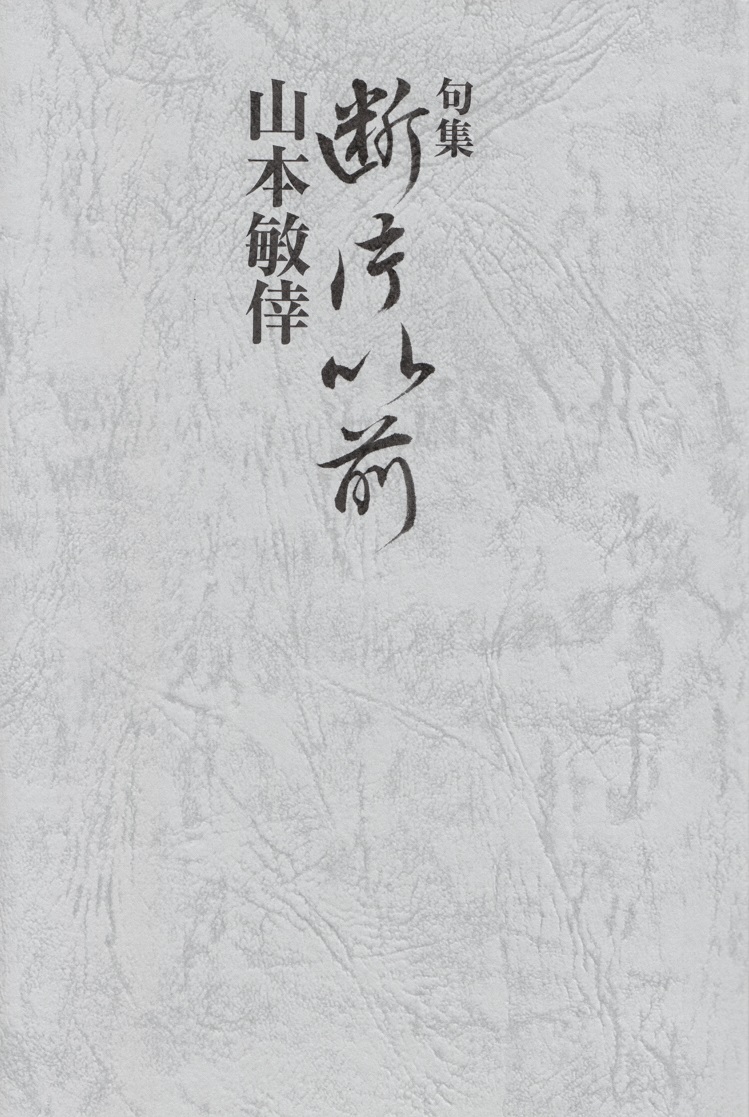 句集
断片以前
山本敏倖